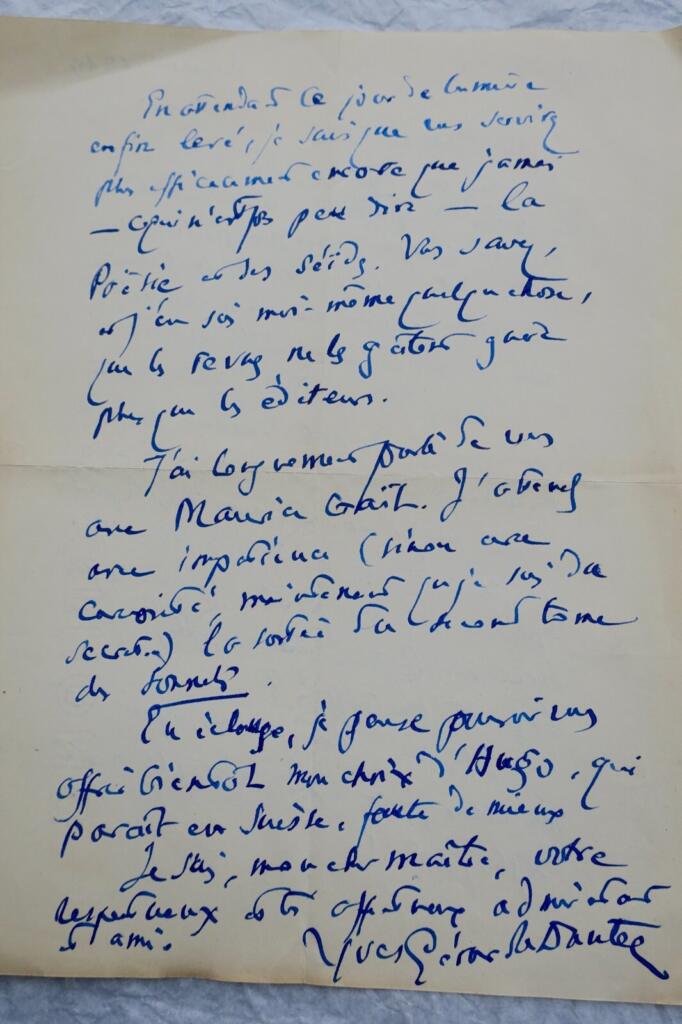 En attendant ce jour de lumière
enfin levé, je sais que vous servirez
plus efficacement encore que jamais
— ce qui n'est pas peu dire — la
Poësie et des Séides. Vous savez,
et j'en sais moi-même quelque chose,
que les revues ne les gâtent guère
plus que les éditeurs.
J'ai longuement parlé de vous
avec Maurice Gaït. J'attends
avec impatience (sinon avec
curiosité, maintenant que je suis du
secret) la sortie du second tome
des Sonnets.
En échange, je pense pouvoir vous
offrir bientôt mon choix d'Hugo, qui
paraît en Suisse, faute de mieux
Je suis, mon cher maître, votre
respectueux et très affectueux admirateur
et ami.
Yves-Gérard Le Dantec